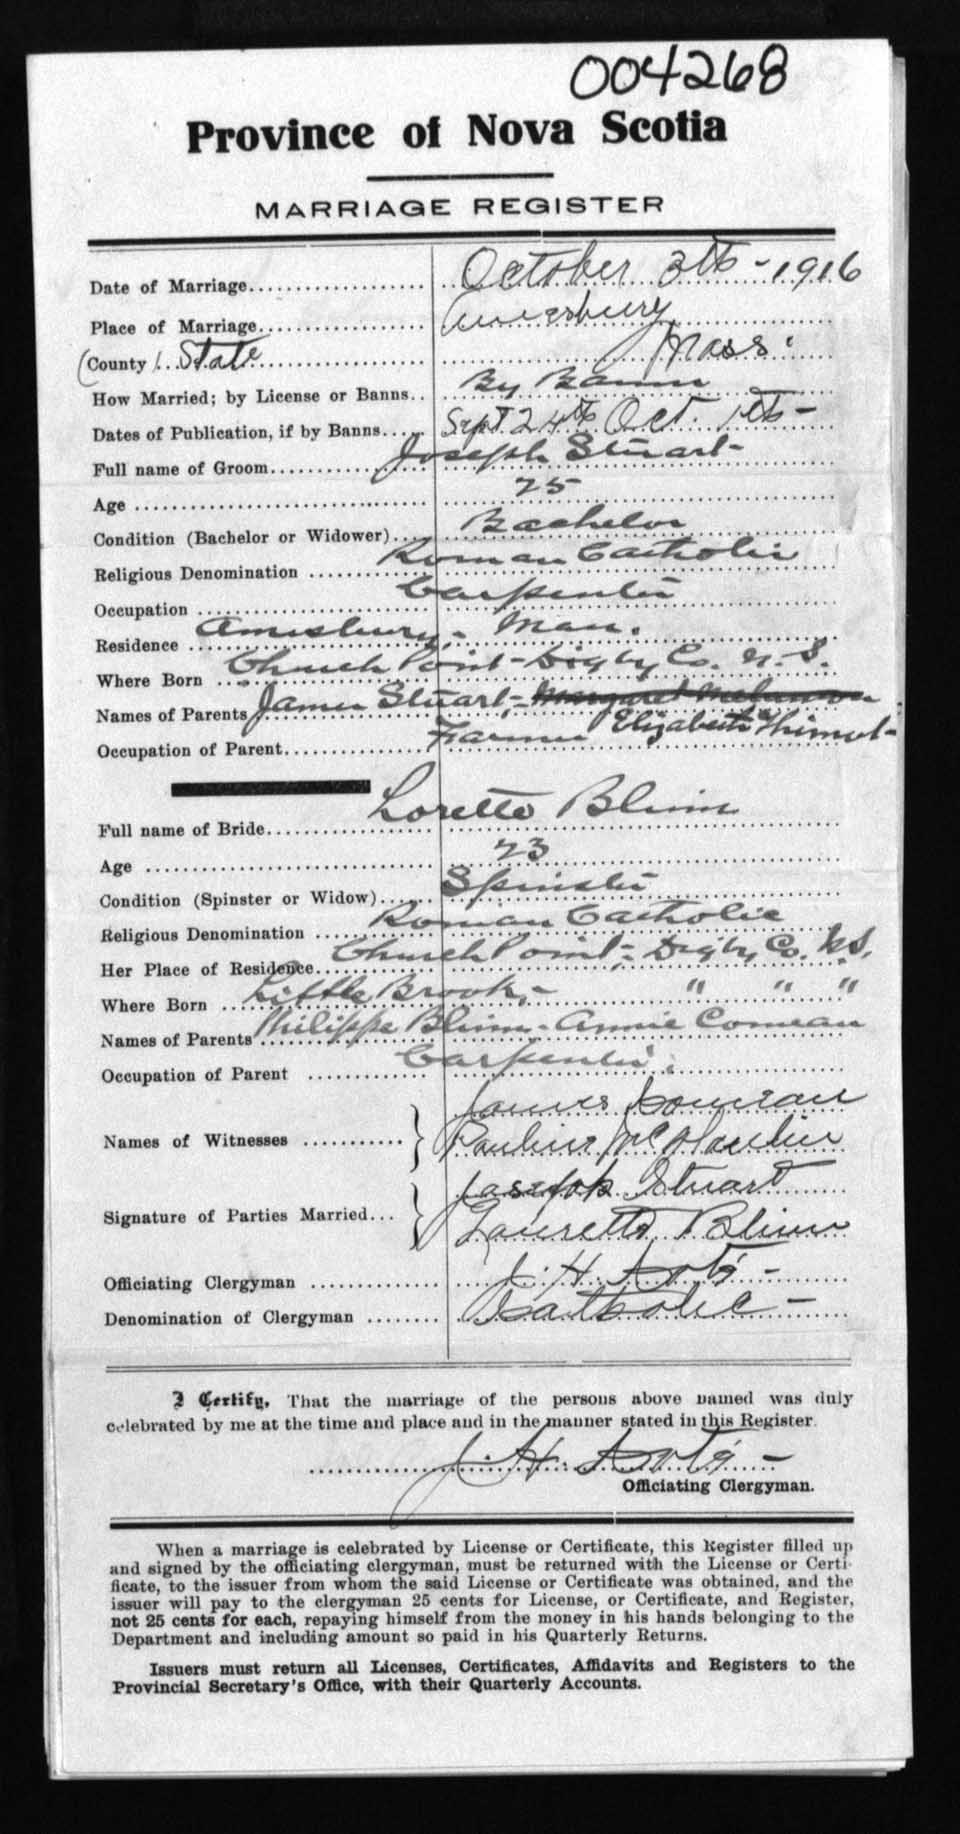 004268
Province of Nova Scotia
MARRIAGE REGISTER
Date of Marriage October 3th - 1916
Place of Marriage Amesbury
(County). State Mass.
How Married; by License or Banns.. By Banns
Dates of Publication, if by Banns Sept 24th Oct. 1th -
Full name of Groom Joseph Stuart -
Age 25
Condition (Bachelor or Widower) Bachelor
Religious Denomination Roman Catholic
Occupation Carpenter
Residence Amesbury, - Mass.
Where Born Church Point - Digby Co. N. S.
Names of Parents James Stuart, - Margaret Melanson
Elizabeth Thimot -
Occupation of Parent Farmer
Full name of Bride Loretto Blinn
Age 23
Condition (Spinster or Widow) Spinster
Religious Denomination Roman Catholic
Her Place of Residence Church Point, - Digby Co. N.S.
Where Born Little Brook, - " " "
Names of Parents Philippe Blinn - Annie Comeau
Occupation of Parent Carpenter
Names of Witnesses James Comeau
Pauline
Signature of Parties Married Joseph Stuart
Lauretta Blinn
Officiating Clergyman J. H. Coté -
Denomination of Clergyman Catholic -
I Certify, That the marriage of the persons above named was duly
celebrated by me at the time and place and in the manner stated in this Register.
J. H. Coté -
Officiating Clergyman.
When a marriage is celebrated by License or Certificate, this Register filled up
and signed by the officiating clergyman, must be returned with the License or Certi-
ficate, to the issuer from whom the said License or Certificate was obtained, and the
issuer will pay to the clergyman 25 cents for License, or Certificate, and Register,
not 25 cents for each, repaying himself from the money in his hands belonging to the
Department and including amount so paid in his Quarterly Returns.
Issuers must return all Licenses, Certificates, Affidavits and Registers to the
Provincial Secretary's Office, with their Quarterly Accounts.